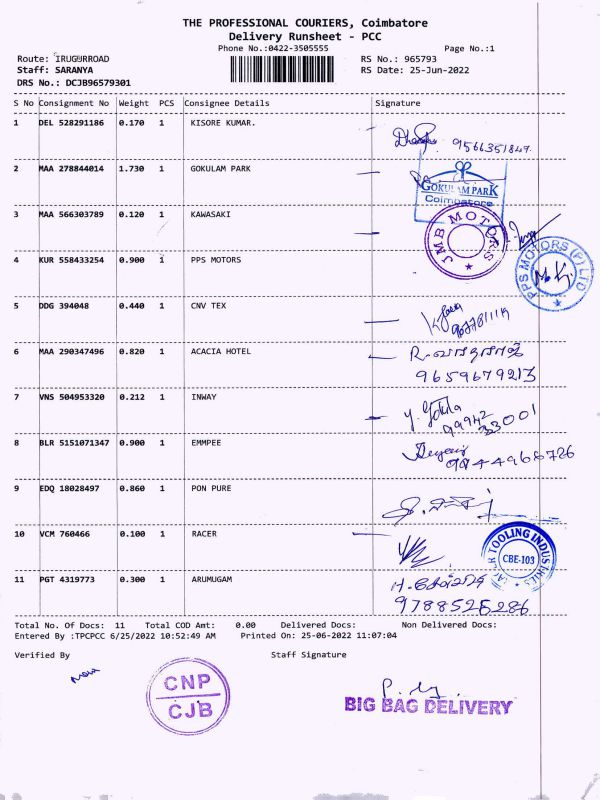 THE PROFESSIONAL COURIERS, Coimbatore
Delivery Runsheet - PCC
Phone No.:0422-3505555 Page No.:1
Route: IRUGURROAD RS No.: 965793
Staff: SARANYA RS Date: 25-Jun-2022
DRS No.: DCJB96579301
S No Consignment No Weight PCS Consignee Details Signature
1 DEL 528291186 0.170 1 KISORE KUMAR.
2 MAA 278844014 1.730 1 GOKULAM PARK
GOKULAM PARK
Coimbatore
3 MAA 566303789 0.120 1 KAWASAKI
JMB MOTORS
4 KUR 558433254 0.900 1 PPS MOTORS
PPS MOTORS (P) LTD
5 DDG 394048 0.440 1 CNV TEX
6 MAA 290347496 0.820 1 ACACIA HOTEL
9659679213
7 VNS 504953320 0.212 1 INWAY
99942 33001
8 BLR 5151071347 0.900 1 EMMPEE
9844968726
9 EDQ 18028497 0.860 1 PON PURE
10 VCM 760466 0.100 1 RACER
TOOLING INDUSTRIES
CBE-103
11 PGT 4319773 0.300 1 ARUMUGAM
9788526286
Total No. Of Docs: 11 Total COD Amt: 0.00 Delivered Docs: Non Delivered Docs:
Entered By :TPCPCC 6/25/2022 10:52:49 AM Printed On: 25-06-2022 11:07:04
Verified By Staff Signature
CNP
CJB
BIG BAG DELIVERY